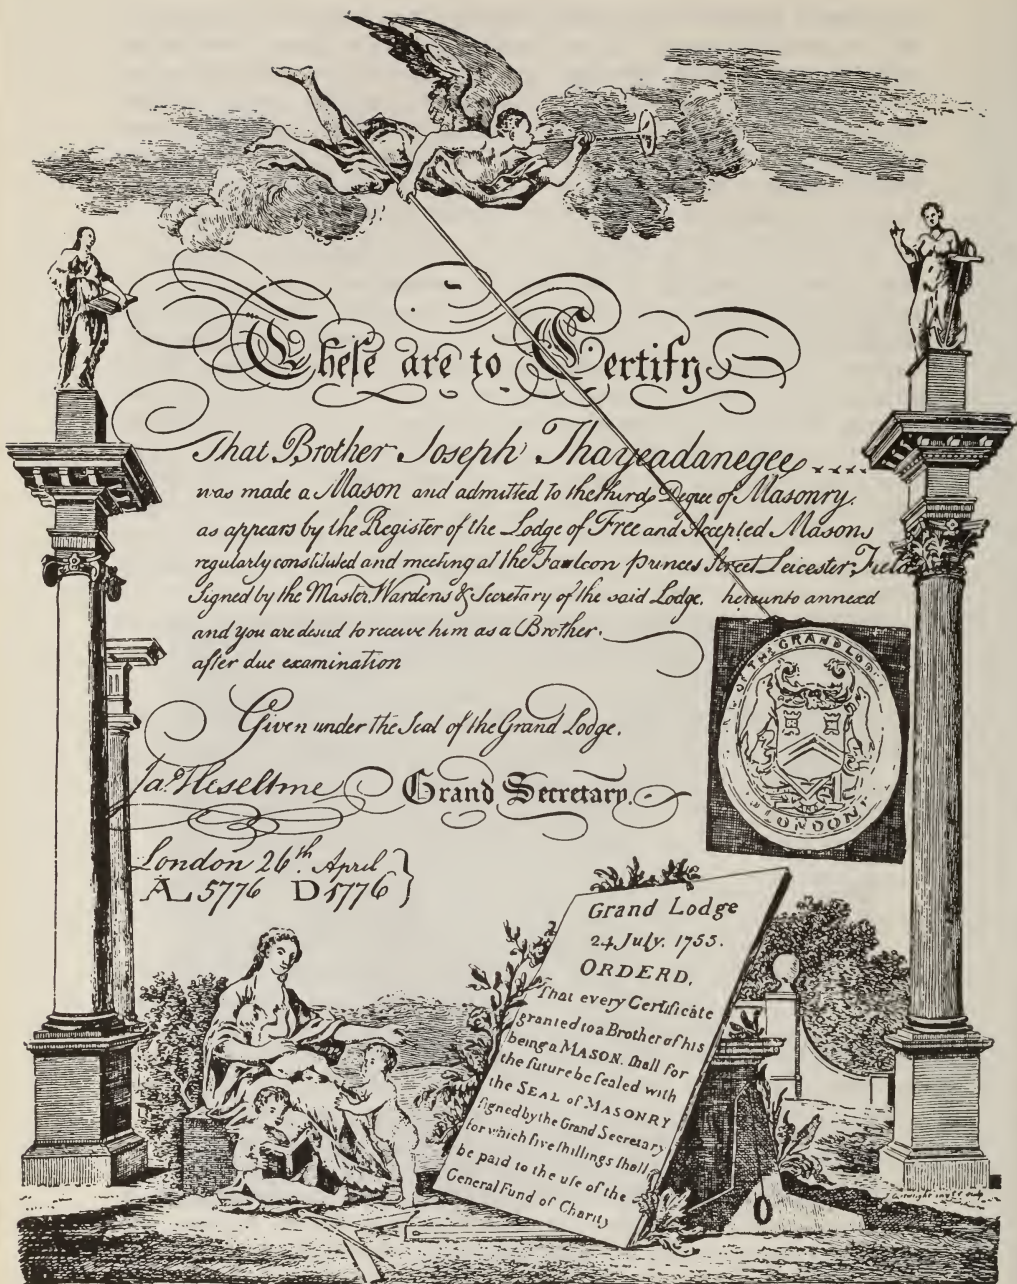 These are to Certify
That Brother Joseph Thayeadanegee
was made a Mason and admitted to the third Degee of Masonry.
as appears by the Register of the Lodge of Free and Accepted Masons
regularly constituted and meeting at the Faulcon Punces Street Leicester Field
Signed by the Master, Wardens & Secretary of the said Lodge. hereunto annexed
and you are desied to receive him as a Brother.
after due examination
Given under the Seal of the Grand Lodge.
Jas. Heseltine Grand Secretary.
London 26th. April
AL 5776 D 1776
OF THE GRAND LODGE
LONDON
Grand Lodge
24 July. 1755.
ORDERD,
That every Certificate
granted to a Brother of his
being a MASON. ſhall for
the future be ſealed with
the SEAL of MASONRY
ſigned by the Grand Secretary
for which five ſhillings ſhall
be paid to the uſe of the
General Fund of Charity